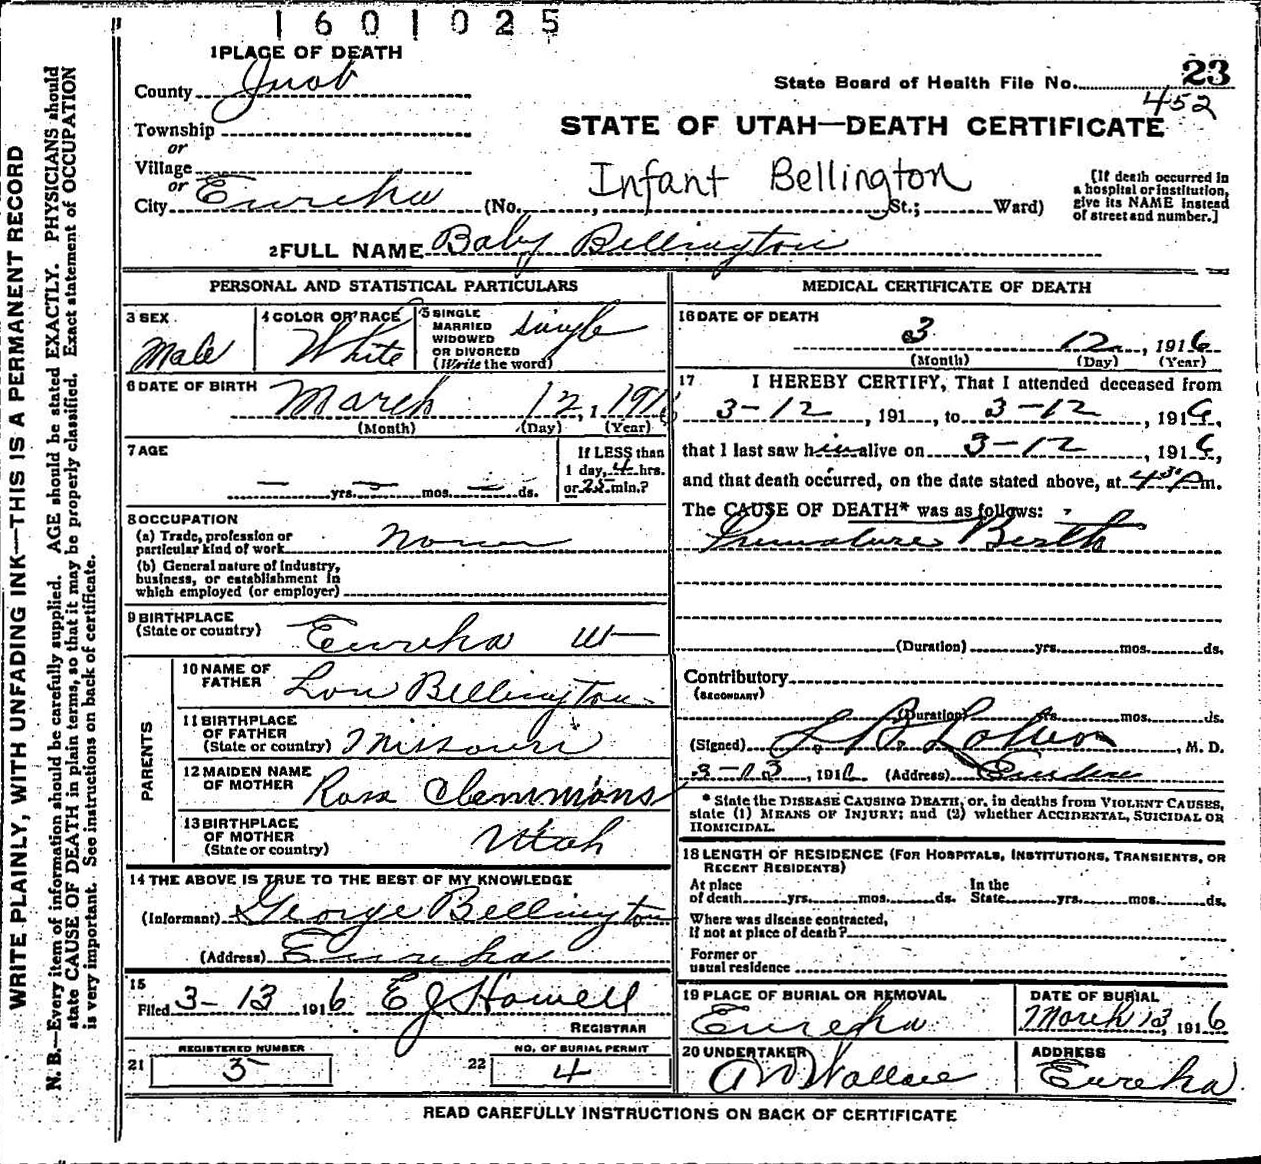 1601025
1 PLACE OF DEATH
County Juab
State Board of Health File No. 23
452
Township
or
Village
or
City Eureka (No. , St.; Ward)
STATE OF UTAH—DEATH CERTIFICATE
Infant Bellington
[If death occurred in
a hospital or institution,
give its NAME instead
of street and number.]
2 FULL NAME Baby Bellington
PERSONAL AND STATISTICAL PARTICULARS
3 SEX
Male
4 COLOR OR RACE
White
5 SINGLE
MARRIED
WIDOWED
OR DIVORCED
(Write the word)
single
6 DATE OF BIRTH March 12, 1916
(Month) (Day) (Year)
7 AGE
— yrs. — mos. — ds.
If LESS than
1 day, 4 hrs.
or 25 min.?
8 OCCUPATION
(a) Trade, profession or
particular kind of work None
(b) General nature of industry,
business, or establishment in
which employed (or employer)
9 BIRTHPLACE
(State or country) Eureka Ut
PARENTS
10 NAME OF
FATHER Lon Bellington
11 BIRTHPLACE
OF FATHER
(State or country) Missouri
12 MAIDEN NAME
OF MOTHER Rosa Clemmons
13 BIRTHPLACE
OF MOTHER
(State or country) Utah
14 THE ABOVE IS TRUE TO THE BEST OF MY KNOWLEDGE
(Informant) George Bellington
(Address) Eureka
15
Filed 3-13 1916 E J Howell
REGISTRAR
21 REGISTERED NUMBER
3
22 NO. OF BURIAL PERMIT
4
MEDICAL CERTIFICATE OF DEATH
16 DATE OF DEATH
3 12, 1916
(Month) (Day) (Year)
17 I HEREBY CERTIFY, That I attended deceased from
3-12, 191 , to 3-12, 1916,
that I last saw him alive on 3-12, 1916,
and that death occurred, on the date stated above, at 4 30 P m.
The CAUSE OF DEATH* was as follows:
Premature Birth
(Duration) yrs. mos. ds.
Contributory
(SECONDARY)
(Duration) yrs. mos. ds.
(Signed) , M. D.
3-13, 1916 (Address) Eureka
* State the DISEASE CAUSING DEATH, or, in deaths from VIOLENT CAUSES,
state (1) MEANS OF INJURY; and (2) whether ACCIDENTAL, SUICIDAL OR
HOMICIDAL.
18 LENGTH OF RESIDENCE (FOR HOSPITALS, INSTITUTIONS, TRANSIENTS, OR
RECENT RESIDENTS)
At place
of death yrs. mos. ds.
In the
State yrs. mos. ds.
Where was disease contracted,
If not at place of death?
Former or
usual residence
19 PLACE OF BURIAL OR REMOVAL
Eureka
DATE OF BURIAL
March 13, 1916
20 UNDERTAKER
A D Wallace
ADDRESS
Eureka
READ CAREFULLY INSTRUCTIONS ON BACK OF CERTIFICATE
WRITE PLAINLY, WITH UNFADING INK—THIS IS A PERMANENT RECORD
N. B.—Every item of information should be carefully supplied. AGE should be stated EXACTLY. PHYSICIANS should
state CAUSE OF DEATH in plain terms, so that it may be properly classified. Exact statement of OCCUPATION
is very important. See instructions on back of certificate.